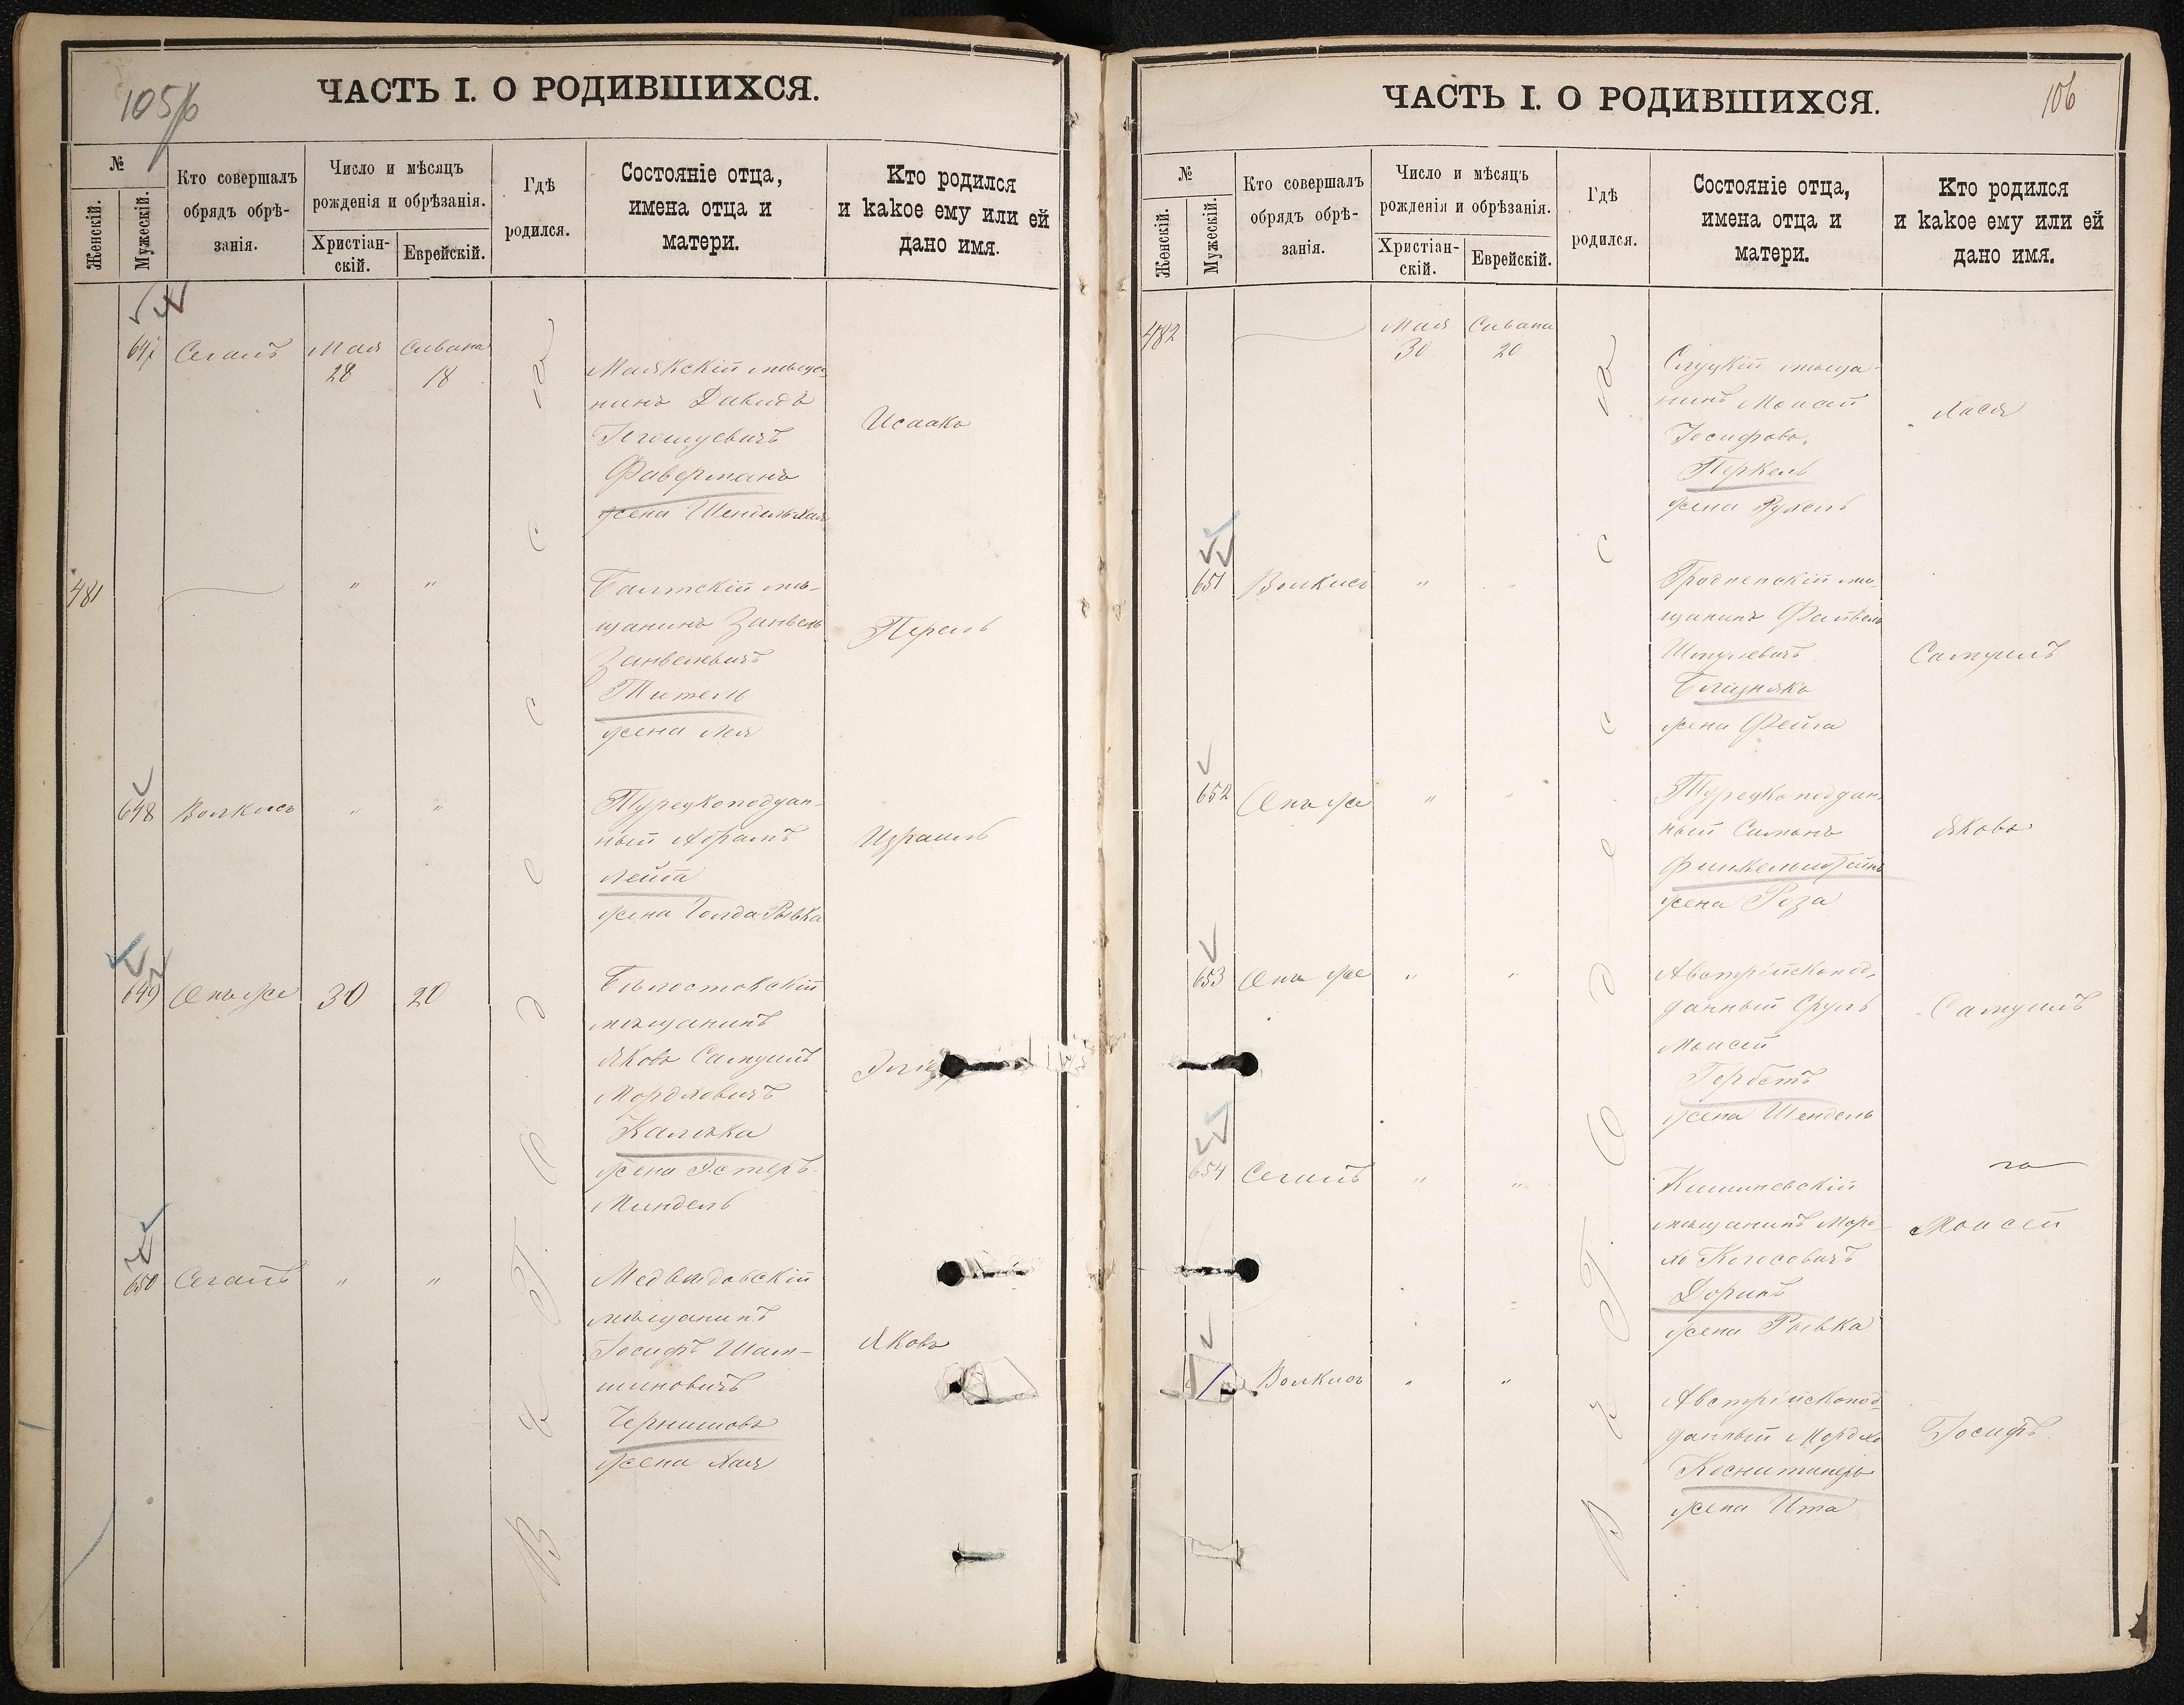 105/6
ЧАСТЬ I. О РОДИВШИХСЯ.
№
Женскій.
Мужескій.
Кто совершалъ
обрядъ обрѣ-
занія.
Число и мѣсяцъ
рожденія и обрѣзанія.
Христіан-
скій.
Еврейскій.
Гдѣ
родился.
Состояніе отца,
имена отца и
матери.
Кто родился
и какое ему или ей
дано имя.
647 Сегалъ Мая Сивана
28 18
Въ Г. Одесса
Маякскій мѣща-
нинъ Давидъ
Фаверманъ
жена Шендль Хая
Исаакъ
481 " "
Балтскій мѣ-
щанинъ Занвель
Занвелевичъ
Титель
жена Лея
Перель
648 Волкисъ " "
Турецкоподдан-
ный Абрамъ
Лейба
жена Голда Рывка
Израиль
649 30 20
Бѣлостокскій
мѣщанинъ
Яковъ Самуилъ
Мордховичъ
Калѣка
жена Эстеръ-
Миндель
650 Сегалъ " "
Медвѣдовскій
мѣщанинъ
Іосифъ Шим-
шиновичъ
жена Хая
Яковъ
ЧАСТЬ I. О РОДИВШИХСЯ.
106
№
Женскій.
Мужескій.
Кто совершалъ
обрядъ обрѣ-
занія.
Число и мѣсяцъ
рожденія и обрѣзанія.
Христіан-
скій.
Еврейскій.
Гдѣ
родился.
Состояніе отца,
имена отца и
матери.
Кто родился
и какое ему или ей
дано имя.
482 Мая Сивана
30 20
Въ Г. Одесса
Слуцкій мѣща-
нинъ Моисей
Іосифовъ
Перкель
жена Рухель
Хася
651 Волкисъ " "
Гродненскій мѣ-
щанинъ Файвель
Шмулевичъ
Близнякъ
жена Фейга
Самуилъ
652 " "
Турецкоподдан-
ный Симонъ
Финкельштейнъ
жена Роза
Яковъ
653 " "
Австрійскопод-
данный Сруль
Моисей
Гербстъ
жена Шендель
Самуилъ
654 Сегалъ " "
Кишиневскій
мѣщанинъ Морд-
хо
Доринъ
жена Рывка
Моисей
Волкисъ " "
Австрійскопод-
данный Мордхо
жена Ита
Іосифъ